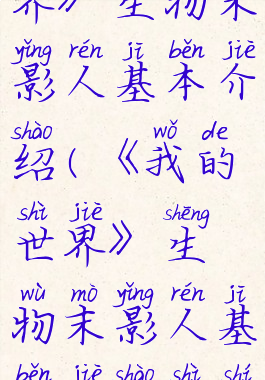 界》生物末
yǐng rén jī běn jiè
影人基本介
shào wǒ de
绍(《我的
shì jiè shēng
世界》生
wù mò yǐng rén jī
物末影人基
běn jiè shào shì shí